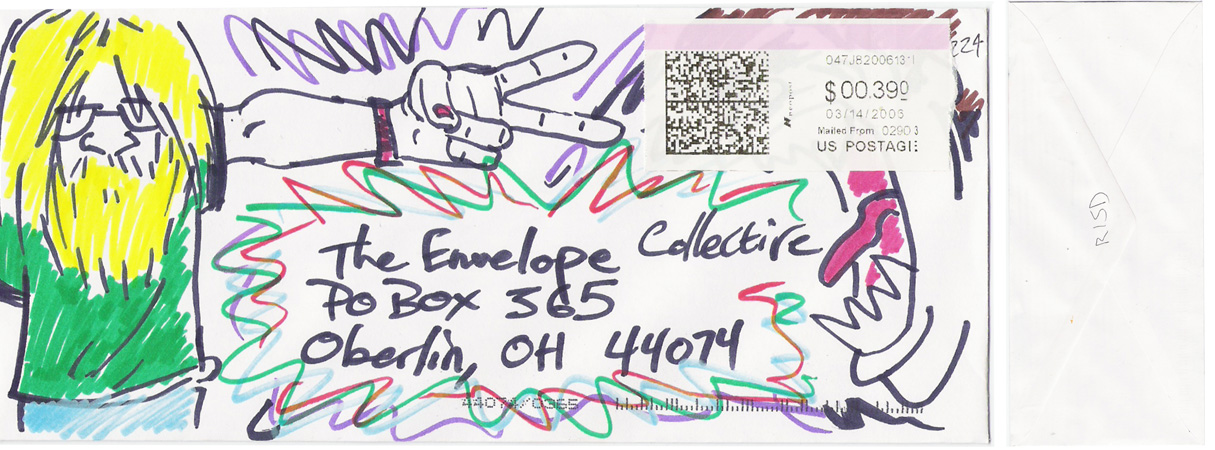 224
047J82006131
$00.390
03/14/2006
Mailed From 02903
US POSTAGE
The Envelope Collective
PO Box 365
Oberlin, OH 44074
44074/0365
RISD